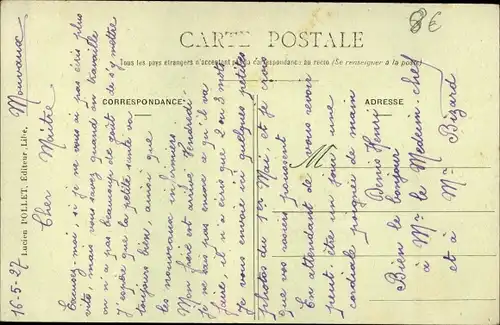 8€
CARTE POSTALE
Tous les pays étrangers n'acceptent pas la correspondance au recto (Se renseigner à la poste)
CORRESPONDANCE
ADRESSE
M
Lucien POLLET, Éditeur, Lille.
16-5-27 Mouvaux
Cher Maître
Excusez-moi, si je ne vous ai pas écris plus
vite, mais vous savez quand on travaille
on n'a pas beaucoup de goût de s'y mettre
J'espère que la petite santé va
toujours bien, ainsi que
les nouveaux infirmiers.
Mon frère est arrivé Vendredi
je ne sais pas encore ce qu'il va
faire, il n'a encore que 2 ou 3 mots
je vous envoie ici quelques petites
photos du 1er Mai et je crois
que vos noirs paraissent
En attendant de vous revoir
peut être un jour une
cordiale poignée de main
Denis Henri
Bien le bonjour
à Mr le Medecin-chef
et à Mr Bizard